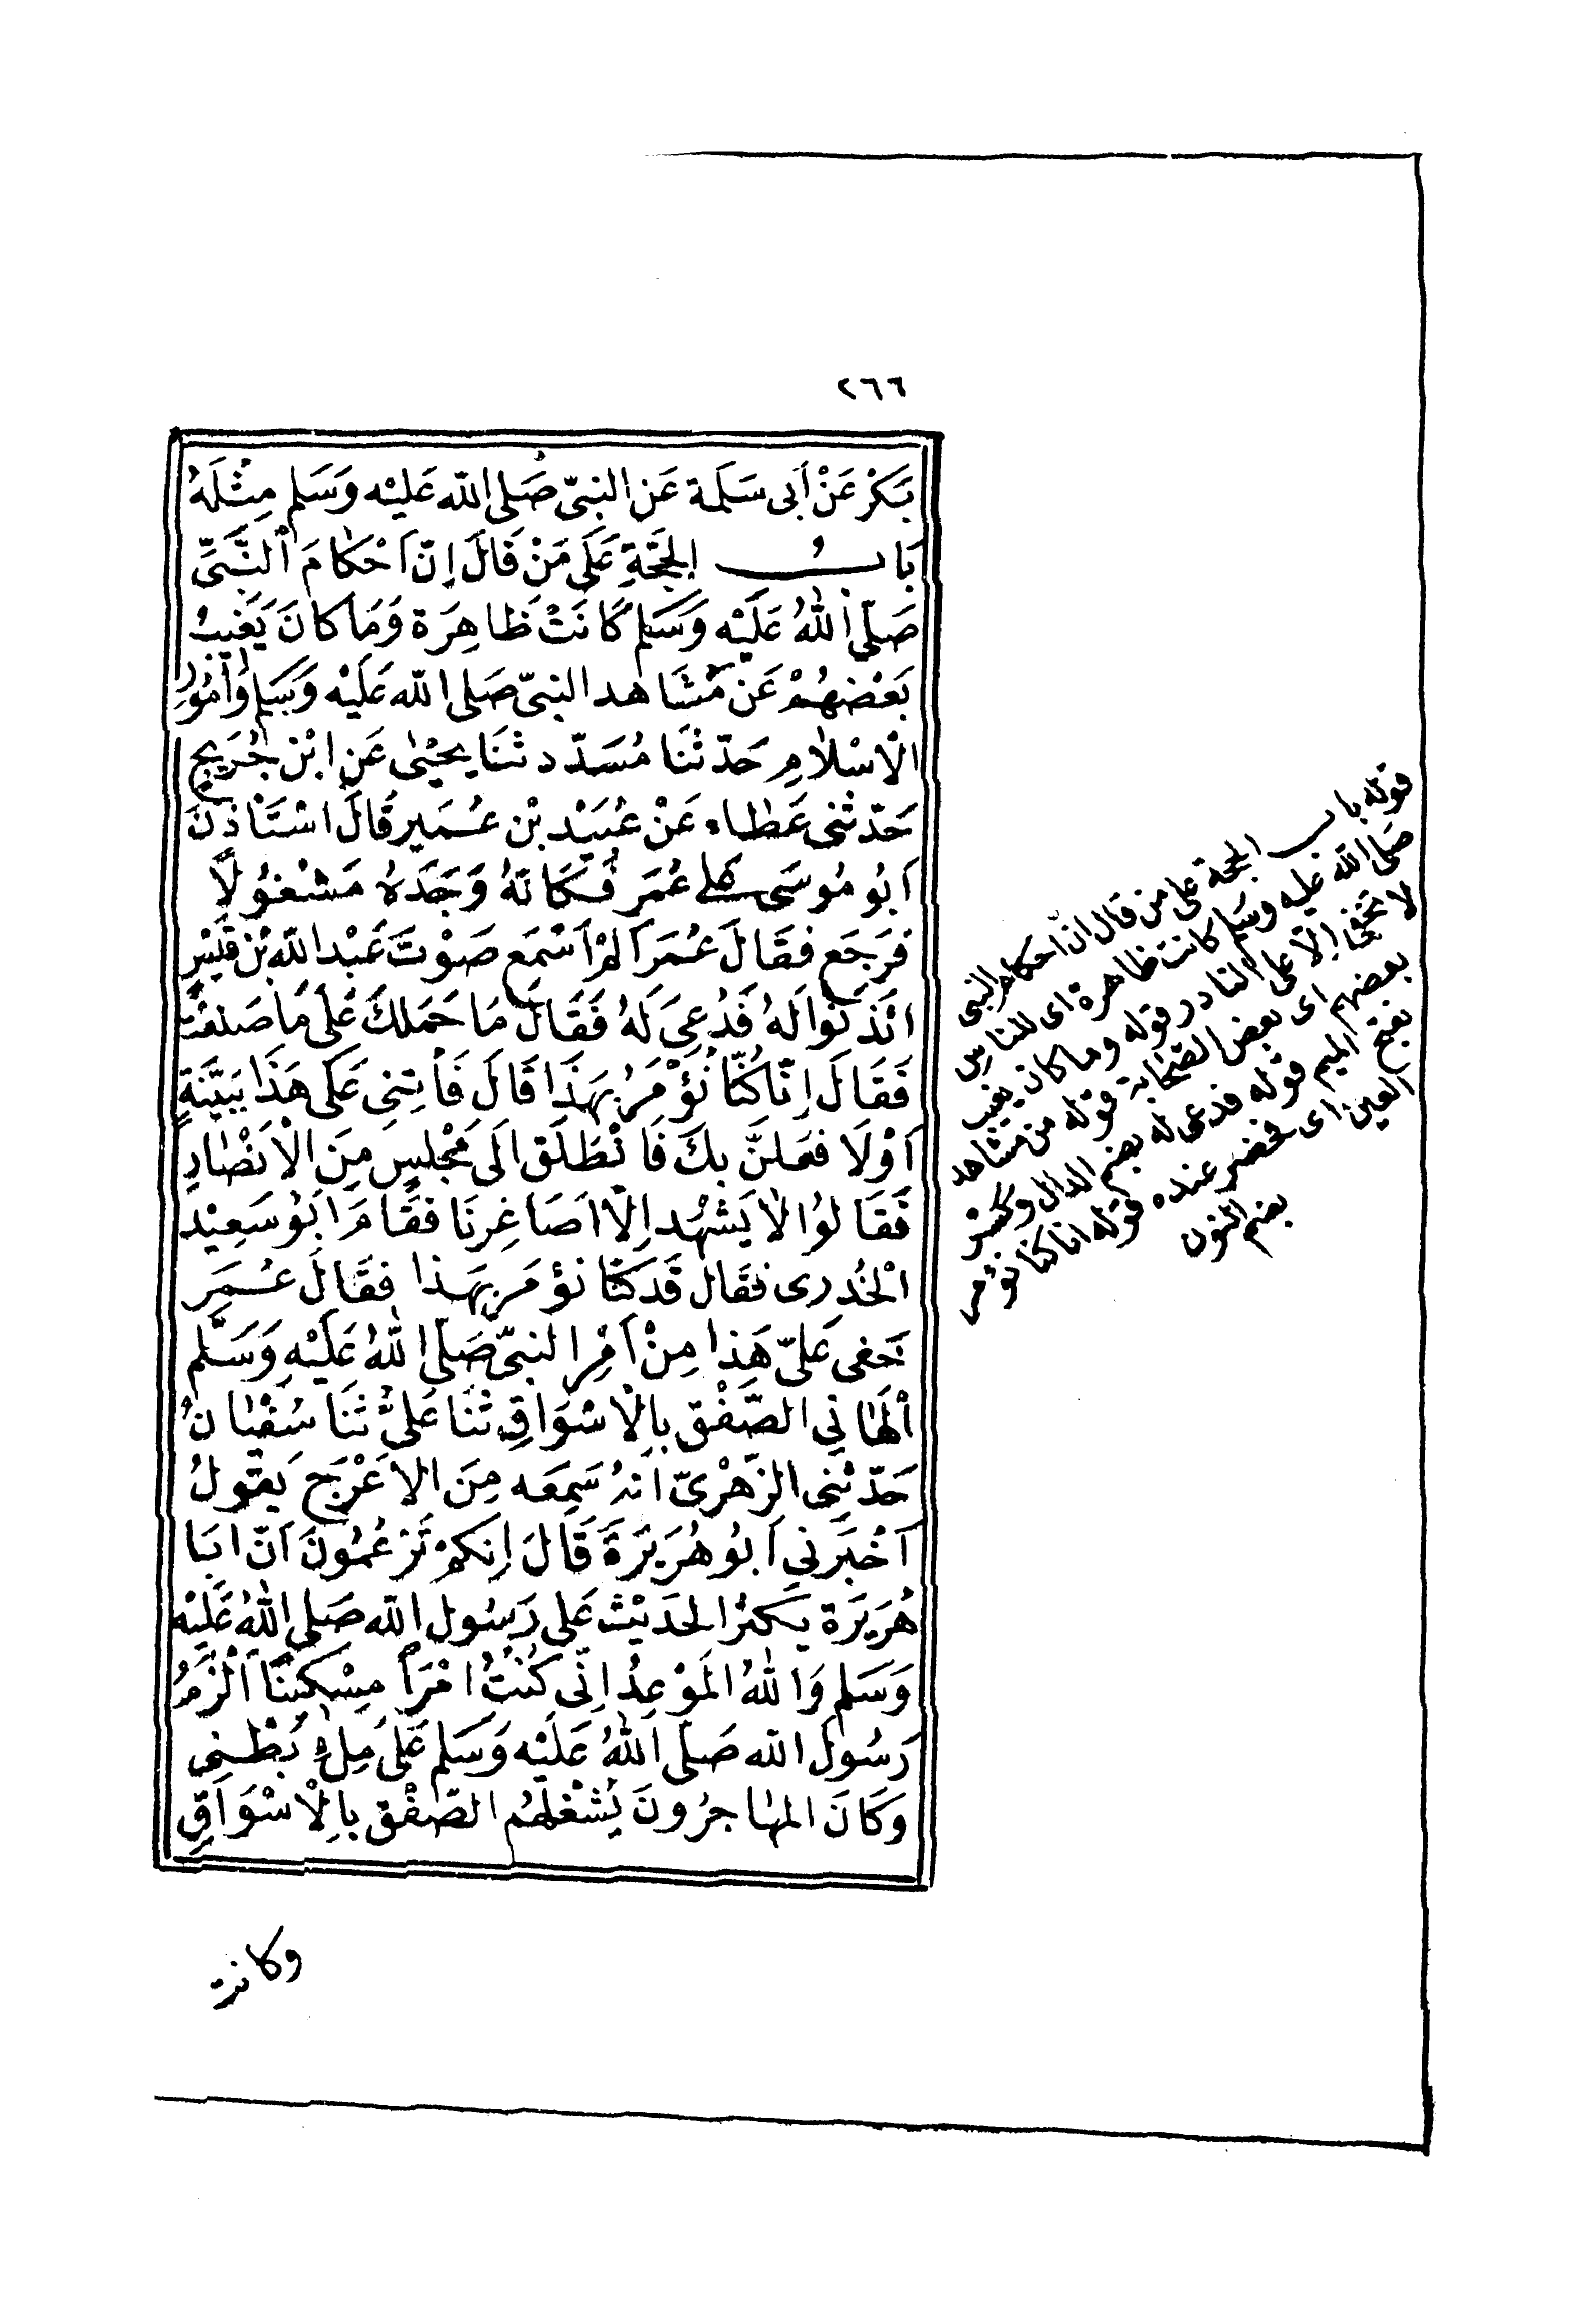 ٢٦٦
بَكْرٍ عَنْ أَبى سَلَمة عَنِ النبىّ صَلى الله عَليْه وَسَلم مِثْلَهُ
بَابُ الحُجَّةِ عَلَى مَنْ قَالَ اِنّ اَحْكامَ النَّبىِّ
صَلّى اللهُ عَلَيْه وَسَلم كَانَتْ ظاهِرَة وَمَا كانَ يَغيبُ
بَعْضهُمْ عَنْ مَشَاهد النبىّ صَلى الله عَلَيْه وَسَلم وَاُمُورِ
الْاسْلامِ حَدّثنَا مُسَدّد ثنَا يحيْىٰ عَنِ ابْن جُرَيج
حَدّثنى عَطاء عَنْ عُبَيْد بْن عُمَير قَالَ اسْتَاْذنَ
اَبُو مُوسَى عَلى عُمَرَ فَكَانهُ وَجَدَهُ مَشْغُولًا
فرَجَع فقَالَ عُمَر اَلمْ اَسْمَع صَوْتَ عَبْد الله بْن قَيْسٍ
ائذَنُوا لهُ فَدُعِىَ لهُ فَقَالَ مَا حَمَلكَ عَلَى مَا صَنَعْتَ
فَقَالَ اِنّا كُنّا نُؤمَرُ بهَذَا قَالَ فَأْتِنِى عَلَى هَذَا بِبَيّنَةٍ
اَوْ لَا فعَلنَّ بكَ فَانْطَلَقَ الَى مَجْلِسٍ مِنَ الْاَنْصَارِ
فَقَالوُا لَا يَشْهُد اِلّا اَصَاغِرنَا فقَامَ اَبُو سَعِيْد
الْخُدرى فقَال قَد كنّا نؤمَر بهَذا فقَالَ عُمَر
خَفى عَلَىّ هَذا مِنْ اَمْرِ النبىّ صَلّى اللهُ عَلَيْهِ وَسَلّم
اَلْهَانِي الصّفْق بالْاسْوَاقِ ثنَا عَلىٌّ ثَنَا سُفْيَانُ
حَدّثنِى الزّهْرىّ اَنهُ سَمِعَه مِنَ الاَعْرَج يَقُولُ
اَخْبَرنِي اَبُو هُرَيْرَةَ قَالَ اِنكمْ تَزعُمُونَ اَنّ ابَا
هُرَيْرَة يكثرُ الحَديْث عَلى رَسُول الله صَلى اللهُ عَلَيْه
وَسَلم وَاللهُ المَوْعِدُ اِنّى كُنْتُ امْرَأً مِسْكينًا اَلْزَمُ
رَسُولَ الله صَلّى اللهُ عَلَيْه وَسَلم عَلَى مِلءِ بَطْنِى
وَكَانَ المهَاجرُونَ يَشْغَلهُم الصّفْق بالْاسْوَاقِ
وكانت
قوله باب الحجة على من قال انّ احكام النبى
صَلى الله عليه وسَلم كانت ظاهرة اى للناس
لا تخفى الّا على النادر قوله وما كان يغيب
بعضهم اى بعض الصّحابة قوله من مشاهد
بفتح الميم قوله فدعى له بضم الدال وكسْر
العين اى فحضر عنده قوله انا كنا نؤمر
بضم النون